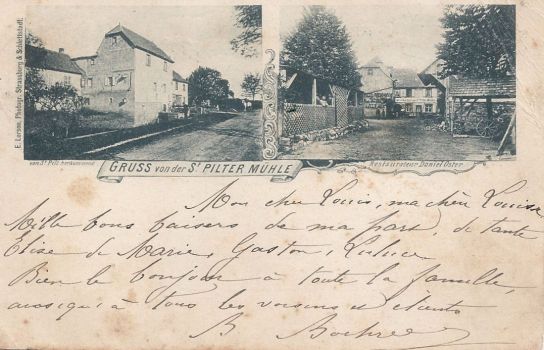 E. Larsen, Photogr. Strassburg & Schlettstadt.
von St Pilt herkommend
GRUSS von der St PILTER MÜHLE
Restaurateur Daniel Oster.
Mon cher Louis, ma chère Louise
Mille bons baisers de ma part, de tante
Elise de Marie, Gaston,
Bien le bonjour à toute la famille,
ainsi qu'à tous les voisins et clients
B